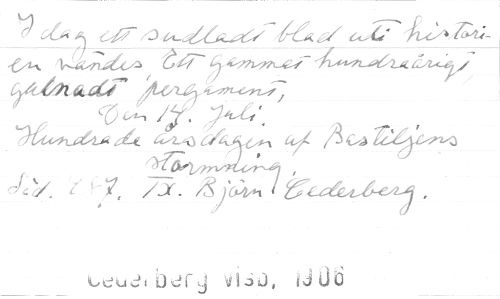 I dag ett sudladt blad uti histori-
en vändes Ett gammat hundraårigt,
gulnadt pergament,
Den 14. Juli.
Hundrade årsdagen af Bastiljens
stormning.
Sid. 787. IX. Björn Cederberg.
Cederberg Visb, 1906